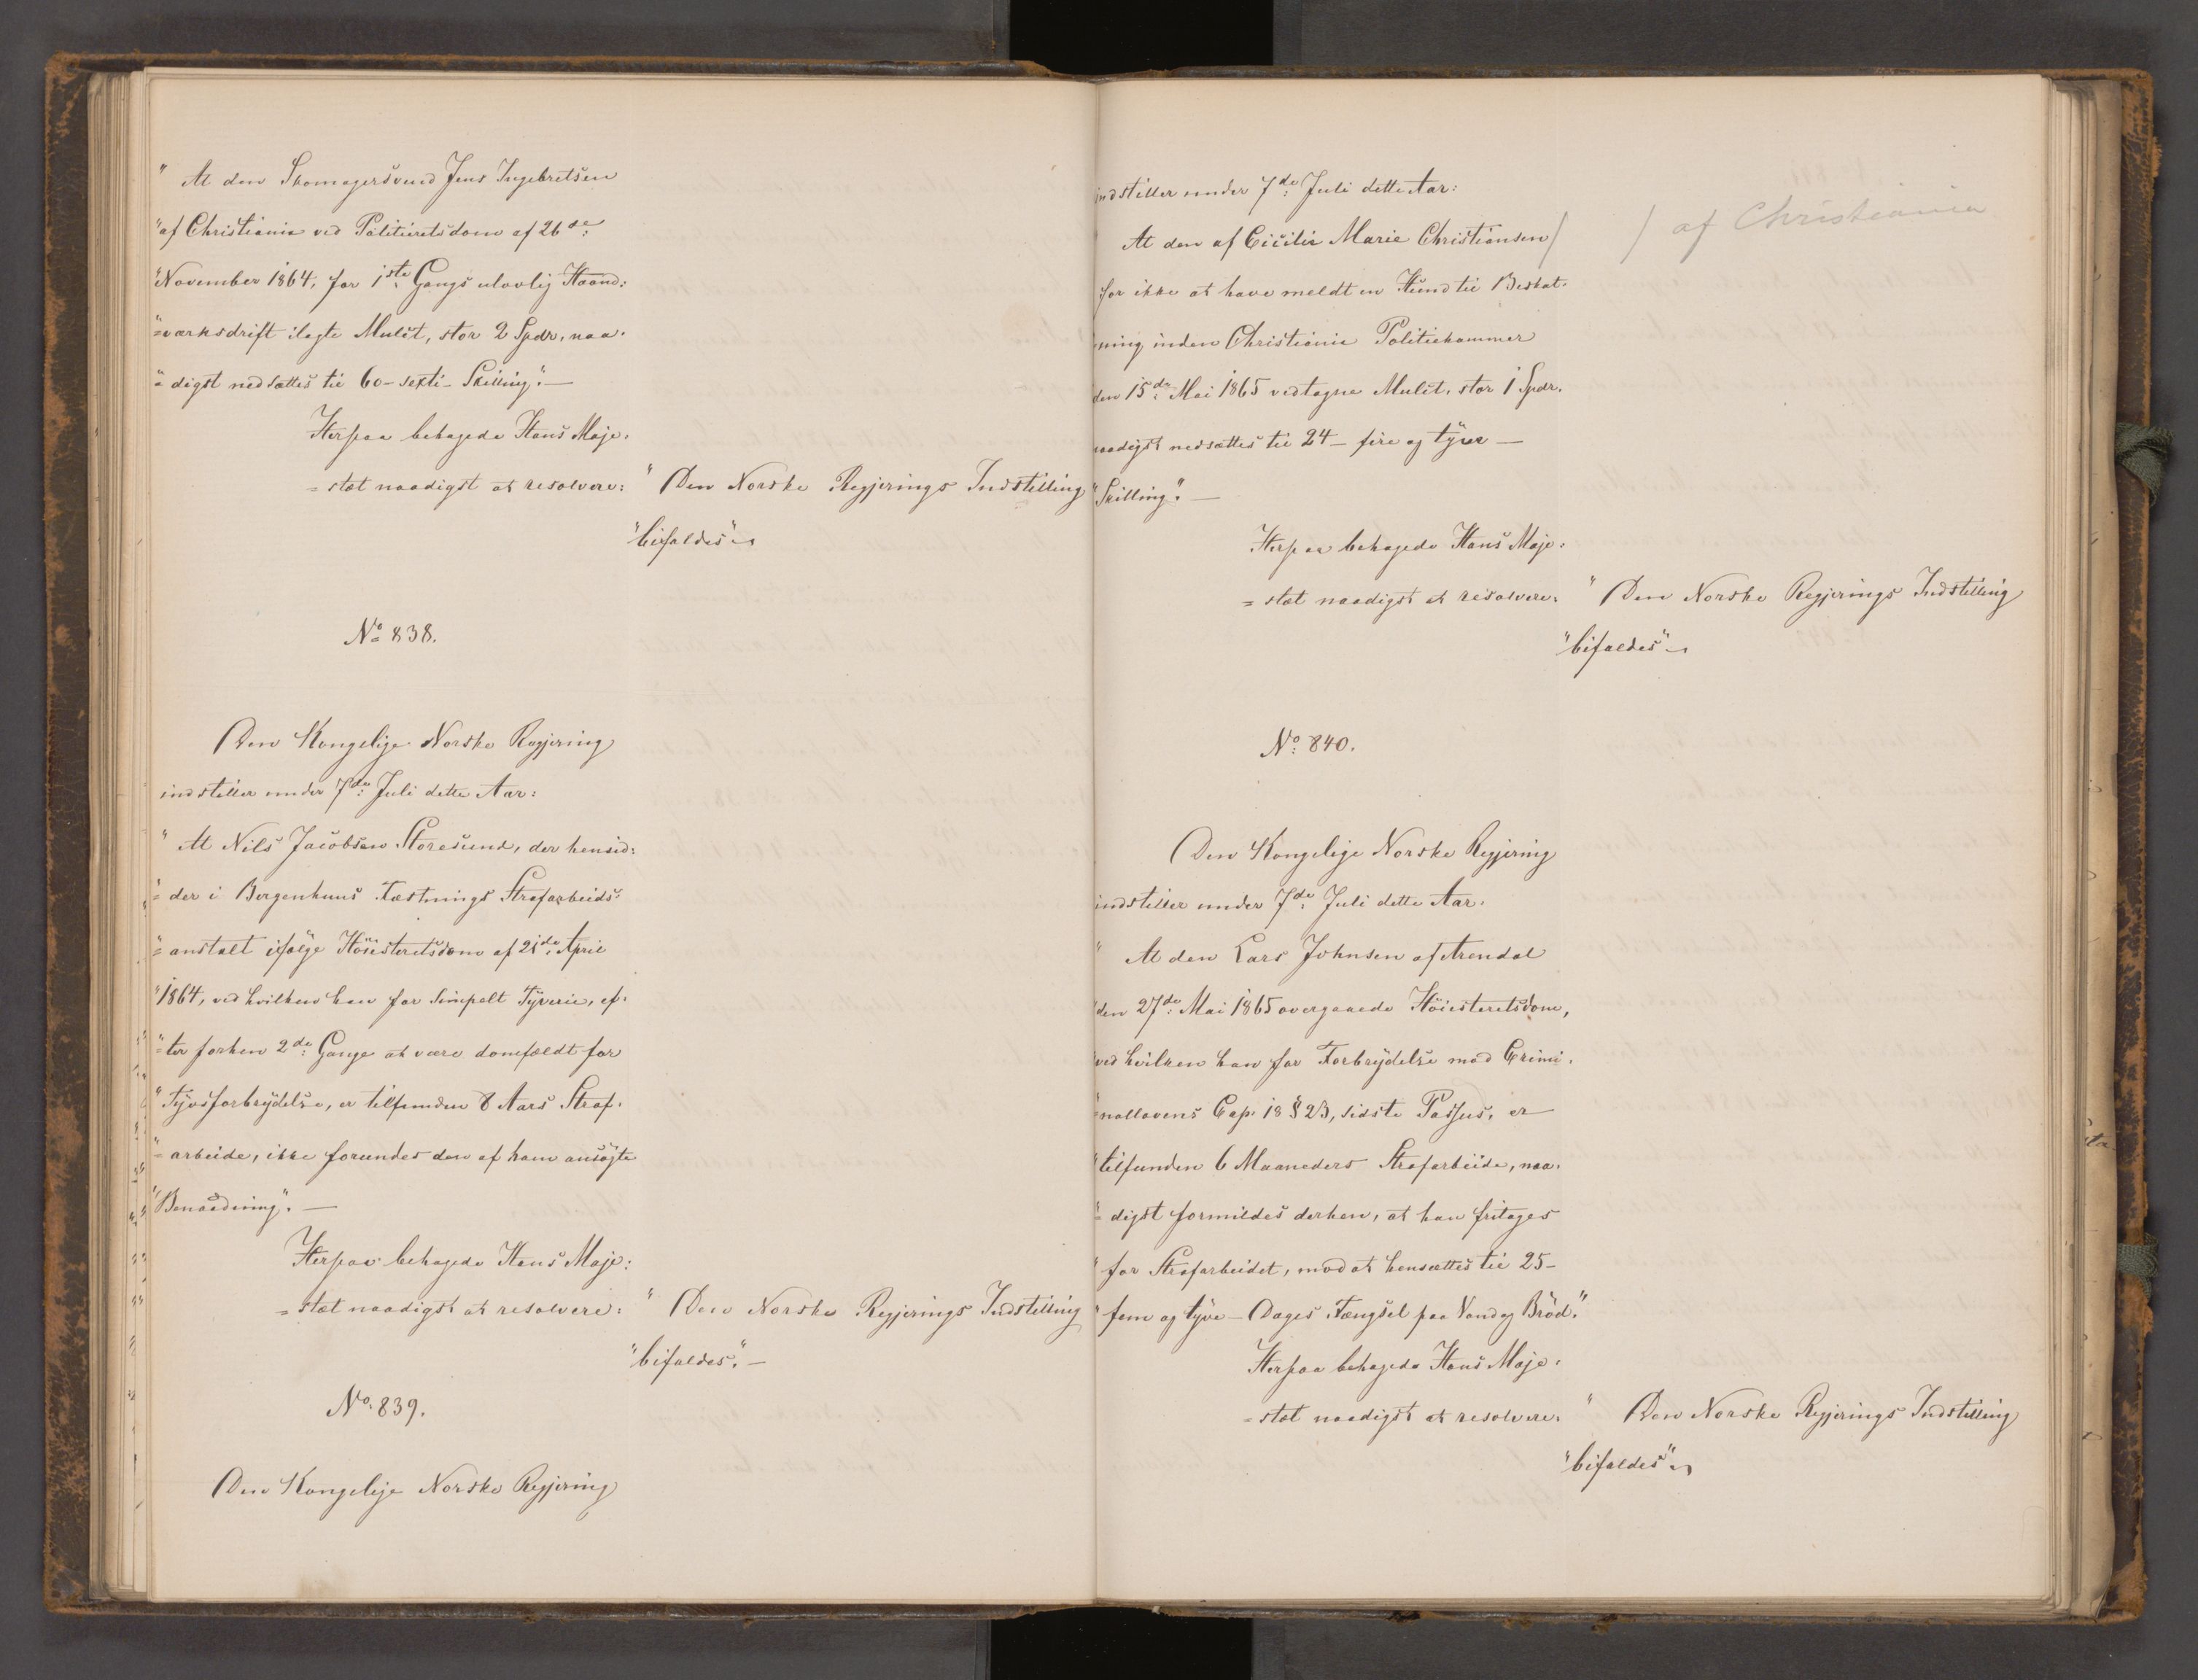 " At den Skomagersvend Jens Ingebretsen
"af Christiania ved Politieretsdom af 26de:
"November 1864, for 1ste Gangs ulovlig Haand:
"=værksdrift ilagte Mulct, stor 2 Spdr, naa.
"=digst nedsættes til 60 - sexti - Skilling". —
Herpaa behagede Hans Maje.
=stæt naadigst at resolvere: " Den Norske Regjerings Indstilling
"bifaldes".
No 838.
Den Kongelige Norske Regjering
indstiller under 7de: Juli dette Aar:
" At Nils Jacobsen Storesund, der hensid:
"=der i Bergenhuus Fæstnings Strafarbeids=
"=anstalt ifølge Höiesteretsdom af 21de April
"1864, ved hvilken han for Simpelt Tyverie, ef.
"=ter forhen 2de: Gange at være domfældt for
"Tyvsforbrydelse, er tilfunden 8 Aars Straf.
"=arbeide, ikke forundes den af ham ansøgte
"Benaadning". —
Herpaa behagede Hans Maje:
=stæt naadigst at resolvere: " Den Norske Regjerings Indstilling
"bifaldes." —
No. 839.
Den Kongelige Norske Regjering
indstiller under 7de: Juli dette Aar:
At den af Cicilie Marie Christiansen / / af Christiania
for ikke at have meldt en Hund til Beskat.
ning inden Christiania Politiekammer
den 15de: Mai 1865 vedtagne Mulct, stor 1 Spdr.
naadigst nedsættes til 24 - fire og tyve —
"Skilling". —
Herpaa behagede Hans Maje:
=stæt naadigst at resolvere: " Den Norske Regjerings Indstilling
"bifaldes"
No: 840.
Den Kongelige Norske Regjering
indstiller under 7de: Juli dette Aar.
" At den Lars Johnsen af Arendal
"den 27de: Mai 1865 overgaaede Höiesteretsdom,
"ved hvilken han for Forbrydelse mod Crimi.
"=nallovens Cap. 18 § 23, sidste Passus, er
"tilfunden 6 Maaneders Strafarbeide, naa.
"=digst formildes derhen, at han fritages
"for Strafarbeidet, mod at hensættes til 25 -
"fem og tyve - Dages Fængsel paa Vand og Bröd."
Herpaa behagede Hans Maje:
=stæt naadigst at resolvere: " Den Norske Regjerings Indstilling
"bifaldes"